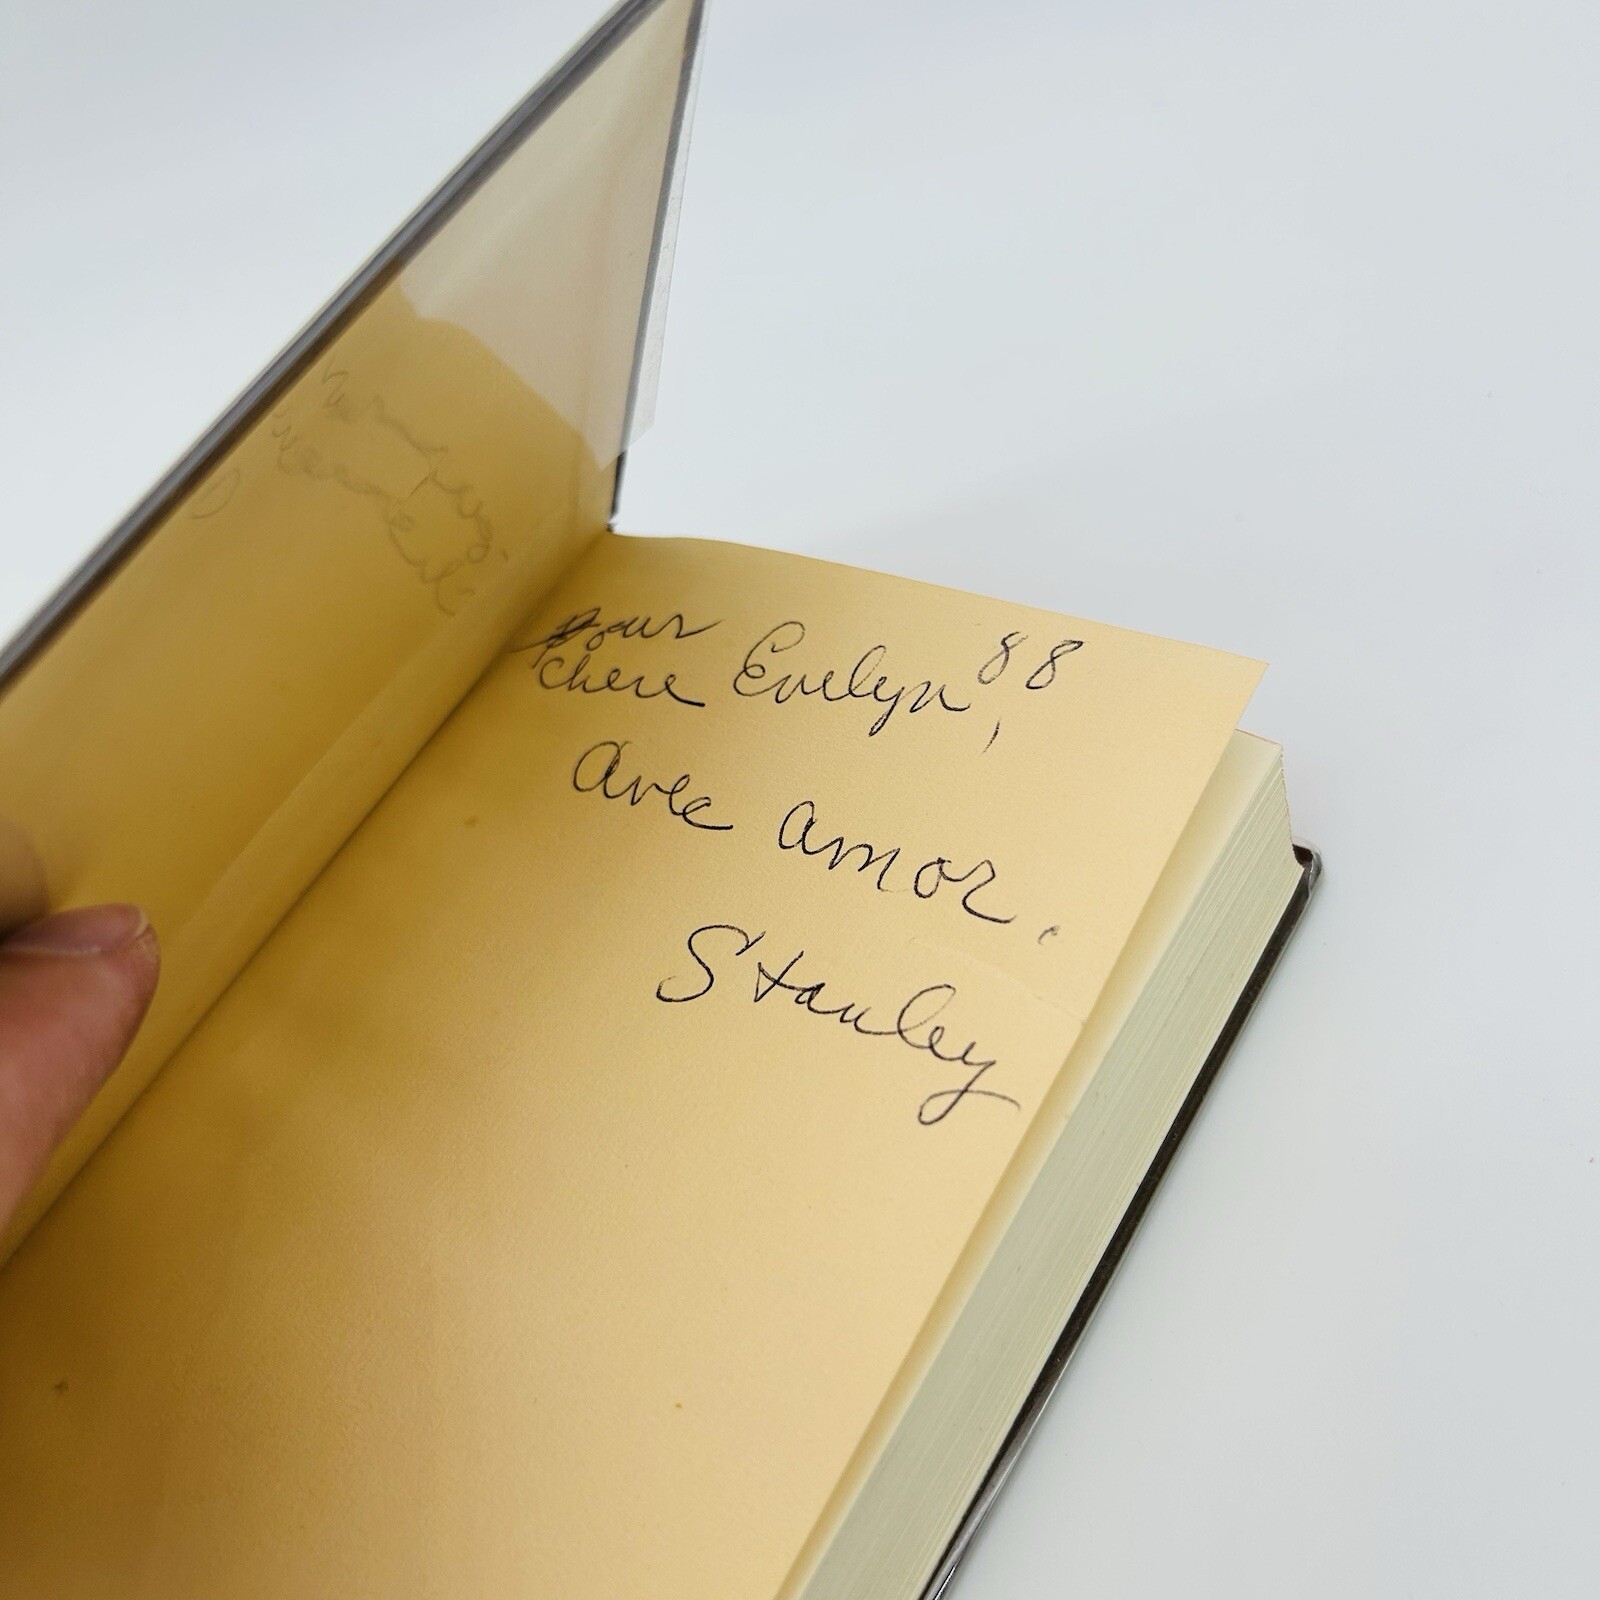 pour 88
chere Evelyn,
Avec amor.
Stanley